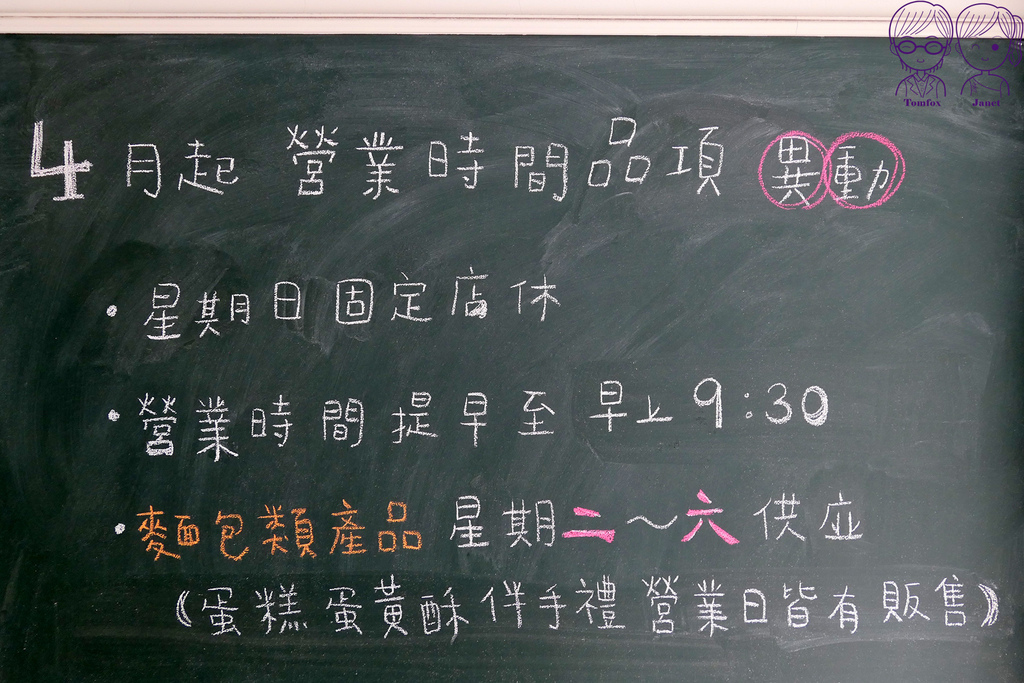 Tomfox Janet
4月起 營業時間品項 異動
・星期日固定店休
・營業時間提早至早上9:30
・麵包類產品 星期二～六 供应
《蛋糕 蛋黃酥 伴手禮 營業日皆有販售》